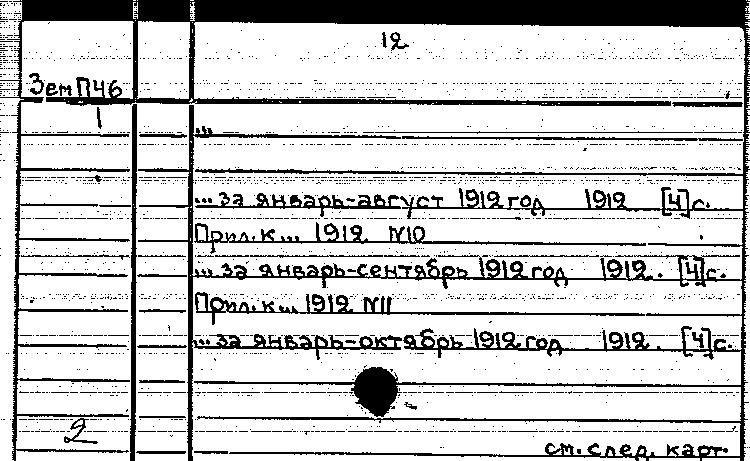 12
ЗемП46
1
"'
... за январь-август 1912 год 1912 [4]с.
Прил.к... 1912 N10
... за январь-сентябрь 1912 год 1912. [4]с.
Прил.к... 1912 N11
... за январь-октябрь 1912 год 1912. [4]с.
2
см. след. карт.